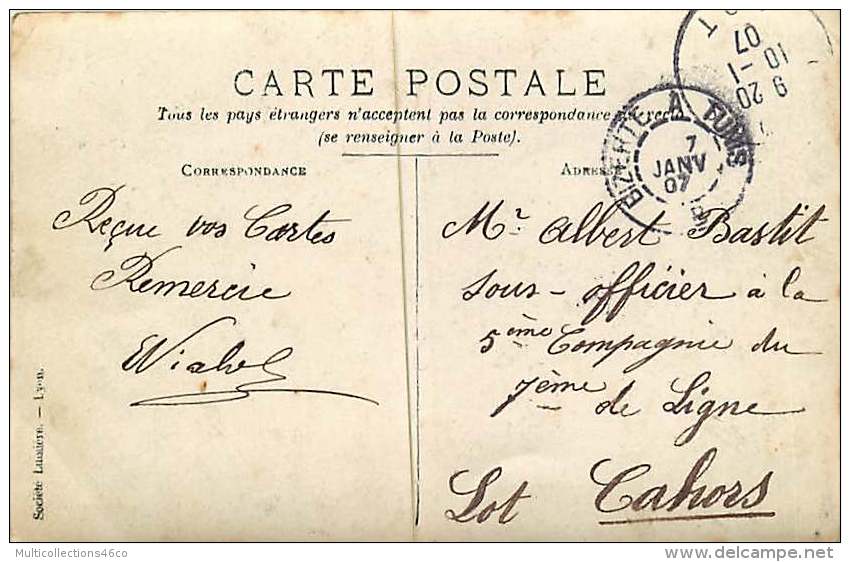 CARTE POSTALE
Tous les pays étrangers n'acceptent pas la correspondance au recto
(se renseigner à la Poste).
CORRESPONDANCE
Reçue vos Cartes
Remercie
ADRESSE
Mr. Albert Bastit
Sous-officier à la
5ème Compagnie du
7ème de Ligne
Cahors
Lot
BIZERTE A TUNIS
7
JANV
07
9 20
10 -1
07
Société Lumière. — Lyon.
Multicollections46co
delcampe.net